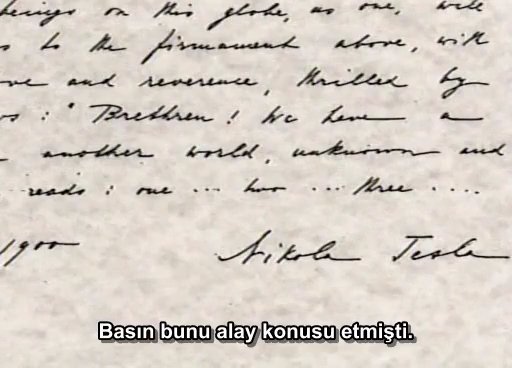 beings on this globe, as one, will
s to the firmament above, with
ove and reverence, thrilled by
ws: "Brethren! We have a
another world, unknown and
reads: one ... two ... three ....
1900 Nikola Tesla
Basın bunu alay konusu etmişti.